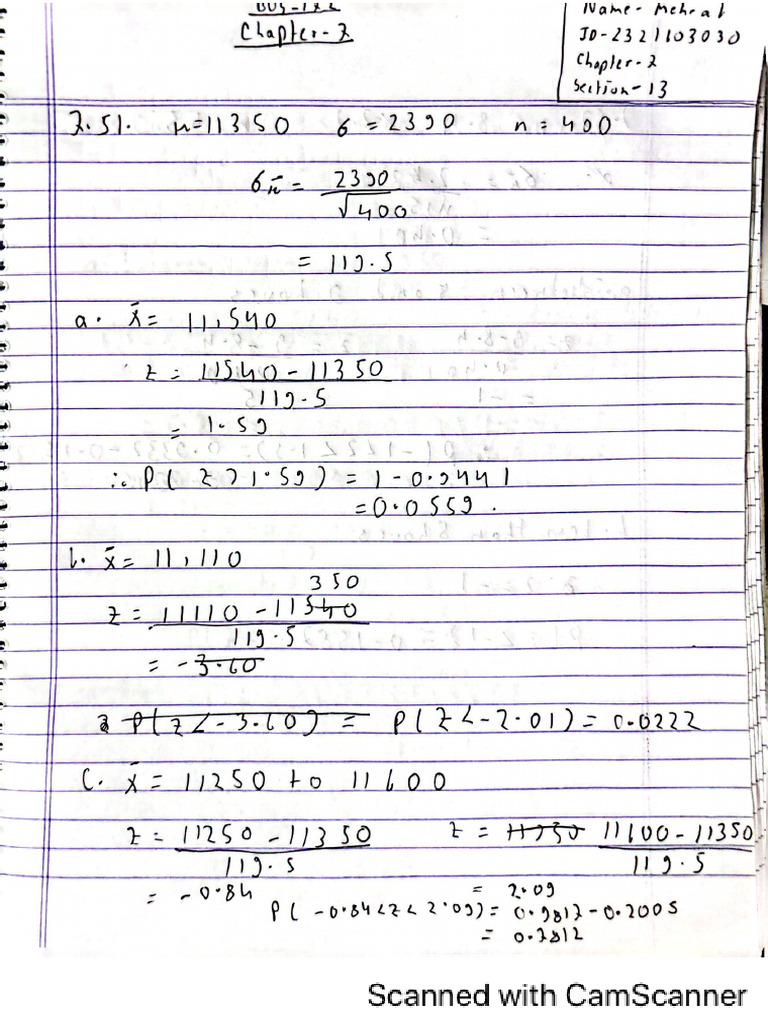 BUS-172
Chapter-7
Name- Mehrab
ID-2321103030
Chapter-7
Section-13
7.51. μ=11350 σ=2390 n=400
σx̄ = 2390
√400
= 119.5
a. x̄= 11,540
z = 11540-11350
119.5
= 1.59
∴ P( z>1.59) = 1-0.9441
=0.0559.
b. x̄= 11,110
350
z = 11110-11540
119.5
= -3.60
P(z<-3.60) = P(z<-2.01)=0.0222
C. x̄= 11250 to 11600
z = 11250-11350 z = 11350 11600-11350
119.5 119.5
= -0.84 = 2.09
P( -0.84<z<2.09)= 0.9817-0.2005
= 0.7812
Scanned with CamScanner